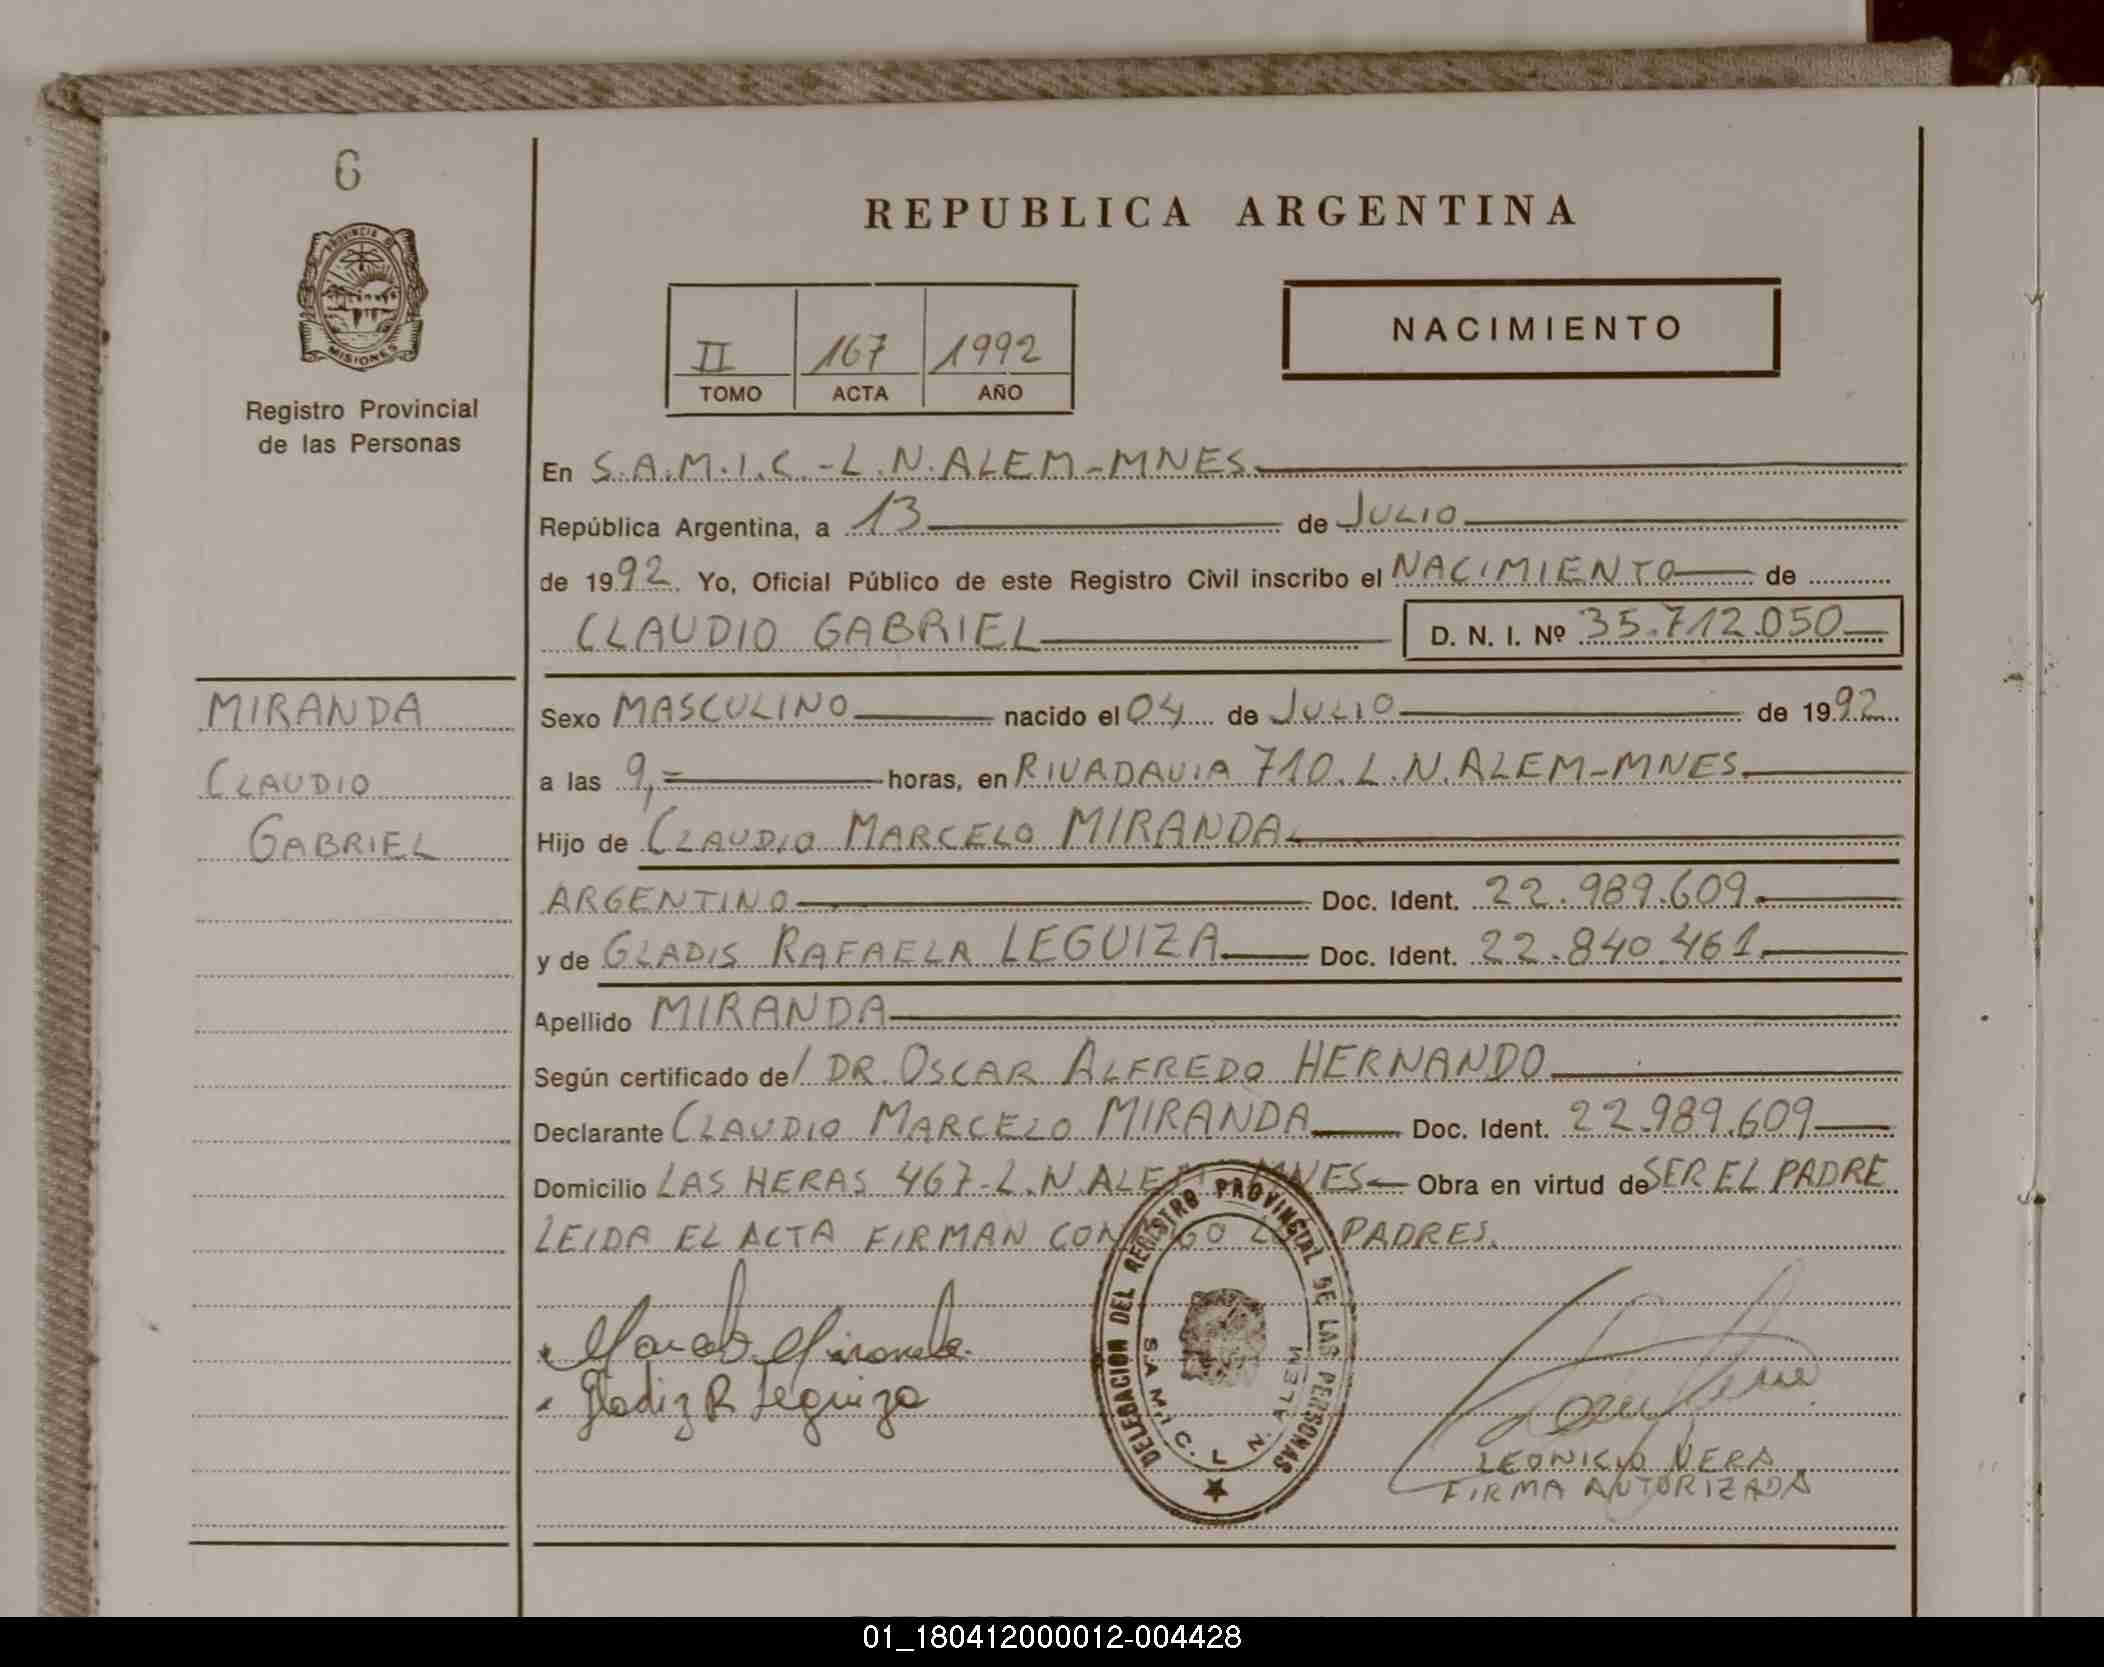 6
PROVINCIA DE
MISIONES
Registro Provincial
de las Personas
MIRANDA
CLAUDIO
GABRIEL
REPUBLICA ARGENTINA
II 167 1992
TOMO ACTA AÑO
NACIMIENTO
En S.A.M.I.C.-L.N.ALEM-MNES
República Argentina, a 13 de JULIO
de 1992. Yo, Oficial Público de este Registro Civil inscribo el NACIMIENTO de
CLAUDIO GABRIEL D. N. I. Nº 35.712.050
Sexo MASCULINO nacido el 04 de JULIO de 1992
a las 9,= horas, en RIVADAVIA 710.L.N.ALEM-MNES
Hijo de CLAUDIO MARCELO MIRANDA
ARGENTINO Doc. Ident. 22.989.609.
y de GLADIS RAFAELA LEGUIZA Doc. Ident. 22.840.461
Apellido MIRANDA
Según certificado de/ DR. OSCAR ALFREDO HERNANDO
Declarante CLAUDIO MARCELO MIRANDA Doc. Ident. 22.989.609
Domicilio LAS HERAS 467-L.N.ALEM-MNES Obra en virtud de SER EL PADRE
LEIDA EL ACTA FIRMAN CONMIGO LOS PADRES.
Marcelo Miranda
Gladiz R Leguiza
DELEGACION DEL REGISTRO PROVINCIAL DE LAS PERSONAS
S.A.M.I.C. L. N. ALEM
LEONICIO VERA
FIRMA AUTORIZADA
01_180412000012-004428